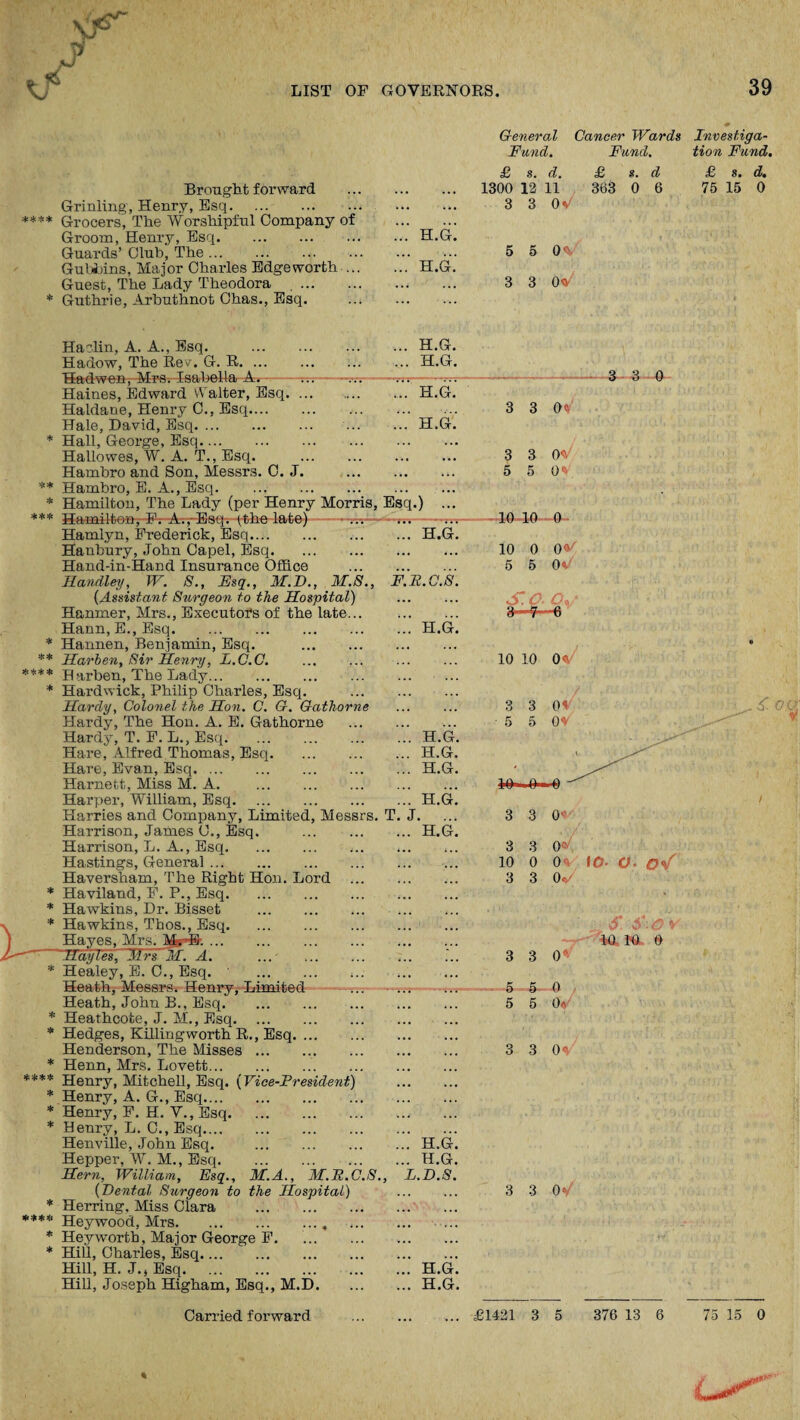 LIST OF GOVERNORS. 39
General Cancer Wards Investiga-
Fund. Fund. tion Fund.
£ s. d. £ s. d £ s. d.
Brought forward ... ... ... 1300 12 11 363 0 6 75 15 0
Grinling, Henry, Esq. ... ... ... ... ... 3 3 0✓
**** Grocers, The Worshipful Company of ... ...
Groom, Henry, Esq. ... ... ... ... H.G.
Guards' Club, The ... ... ... ... ... ... 5 5 0✓
Gubbins, Major Charles Edgeworth ... ... H.G.
Guest, The Lady Theodora ... ... ... ... 3 3 0✓
* Guthrie, Arbuthnot Chas., Esq. ... ... ...
Haclin, A. A., Esq. ... ... ... ... H.G.
Hadow, The Rev. G. R. ... ... ... ... H.G.
Hadwen, Mrs. Isabella A. ... ... ... ... 3 3 0
Haines, Edward Walter, Esq. ... ... ... H.G.
Haldane, Henry C., Esq.... ... ... ... ... 3 3 0✓
Hale, David, Esq. ... ... ... ... ... H.G.
* Hall, George, Esq.... ... ... ... ... ...
Hallowes, W. A. T., Esq. ... ... ... ... 3 3 0✓
Hambro and Son, Messrs. C. J. ... ... ... 5 5 0✓
** Hambro, E. A., Esq. ... ... ... ... ...
* Hamilton, The Lady (per Henry Morris, Esq.) ...
*** Hamilton, F. A., Esq. (the late) ... ... ... 10 10 0
Hamlyn, Frederick, Esq.... ... ... ... H.G.
Hanbury, John Capel, Esq. ... ... ... ... 10 0 0✓
Hand-in-Hand Insurance Office ... ... ... 5 5 0✓
Handley, W. S., Esq., M.D., M.S., F.R.C.S.
(Assistant Surgeon to the Hospital) ... ... 5. 0. 0✓
Hanmer, Mrs., Executors of the late... ... ... 3 7 6
Hann, E., Esq. ... ... ... ... ... H.G.
* Hannen, Benjamin, Esq. ... ... ... ...
** Harben, Sir Henry, L.C.C. ... ... ... ... 10 10 0✓
**** Harben, The Lady... ... ... ... ... ...
* Hardwick, Philip Charles, Esq. ... ... ...
Hardy, Colonel the Hon. C. G. Gathorne ... ... 3 3 0✓
Hardy, The Hon. A. E. Gathorne ... ... ... 5 5 0✓
Hardy, T. F. L., Esq. ... ... ... ... H.G.
Hare, Alfred Thomas, Esq. ... ... ... H.G.
Hare, Evan, Esq. ... ... ... ... ... H.G.
Harnett, Miss M. A. ... ... ... ... ... 10 0 0
Harper, William, Esq. ... ... ... ... H.G.
Harries and Company, Limited, Messrs. T. J. ... 3 3 0✓
Harrison, James C., Esq. ... ... ... ... H.G.
Harrison, L. A., Esq. ... ... ... ... ... 3 3 0✓
Hastings, General ... ... ... ... ... ... 10 0 0✓ 10. 0. 0✓
Haversham, The Right Hon. Lord ... ... ... 3 3 0✓
* Haviland, F. P., Esq. ... ... ... ... ...
* Hawkins, Dr. Bisset ... ... ... ... ...
* Hawkins, Thos., Esq. ... ... ... ... ... 5 5 0✓
Hayes, Mrs. M. E. ... ... ... ... ... ... 10 10 0
Hayles, Mrs M. A. ... ... ... ... ... 3 3 0✓
* Healey, E. C., Esq. ... ... ... ... ...
Heath, Messrs. Henry, Limited ... ... ... 5 5 0
Heath, John B., Esq. ... ... ... ... ... 5 5 0✓
* Heathcote, J. M., Esq. ... ... ... ... ...
* Hedges, Killingworth R., Esq. ... ... ... ...
Henderson, The Misses ... ... ... ... ... 3 3 0✓
* Henn, Mrs. Lovett... ... ... ... ... ...
**** Henry, Mitchell, Esq. (Vice-President) ... ...
* Henry, A. G., Esq.... ... ... ... ... ...
* Henry, F. H. V., Esq. ... ... ... ... ...
* Henry, L. C., Esq.... ... ... ... ... ...
Henville, John Esq. ... ... ... ... H.G.
Hepper, W. M., Esq. ... ... ... ... H.G.
Hern, William, Esq., M.A., M.R.C.S., L.D.S.
(Dental Surgeon to the Hospital) ... ... 3 3 0✓
* Herring, Miss Clara ... ... ... ... ...
**** Heywood, Mrs. ... ... ... ... ... ...
* Heyworth, Major George F. ... ... ... ...
* Hill, Charles, Esq.... ... ... ... ... ...
Hill, H. J., Esq. ... ... ... ... ... H.G.
Hill, Joseph Higham, Esq., M.D. ... ... H.G.
Carried forward ... ... ... £1421 3 5 376 13 6 75 15 0